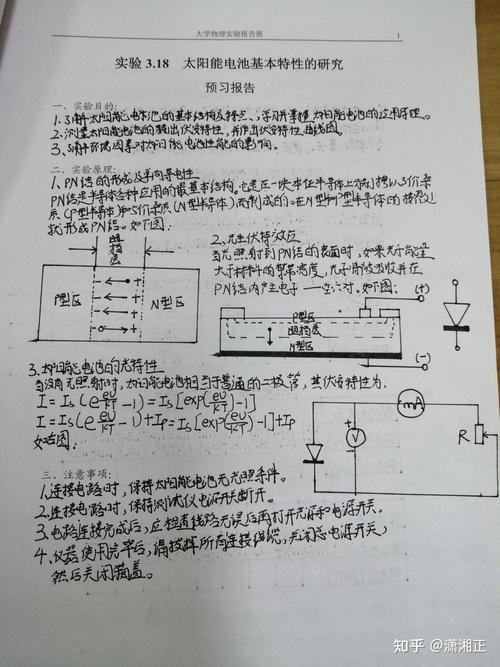 大学物理实验报告册 1
实验 3.18 太阳能电池基本特性的研究
预习报告
一、实验目的:
1、了解太阳能电池的基本结构及特点、学习并掌握太阳能电池的应用原理。
2、测量太阳能电池的输出伏安特性,并作出伏安特性曲线图。
3、了解环境因素对太阳能电池性能的影响。
二、实验原理:
1、PN结的形成及单向导电性
PN结是半导体各种应用的最基本结构,它是在一块本征半导体上分别掺以3价杂
质(P型半导体)和5价杂质(N型半导体)而制成的。在N型和P型半导体的接界处
形成PN结。如下图:
阻挡层
P型区
N型区
2、光生伏特效应
当光照射到PN结的表面时,如果光子能量
大于材料的禁带宽度,光子将被吸收并在
PN结内产生电子——空穴对。如下图:
(+)
P型区
阻挡层
N型区
(-)
3、太阳能电池的光特性
当没有光照射时,太阳能电池相当于普通的二极管,其伏安特性为:
I = Is(e^(eU/KT) -1) = Is[exp(eU/KT)-1]
I = Is(e^(eU/KT) -1)+Ip = Is[exp(eU/KT)-1]+Ip
如右图:
mA
V
R
三、注意事项:
1、连接电路时,保持太阳能电池无光照条件。
2、连接电路时,保持测试仪电源开关断开。
3、电路连接完成后,应检查线路无误后再打开光源和电源开关。
4、仪器使用完毕后,请拔掉所有连接线缆,关闭总电源开关,
然后关闭箱盖。
知乎 @潇湘正